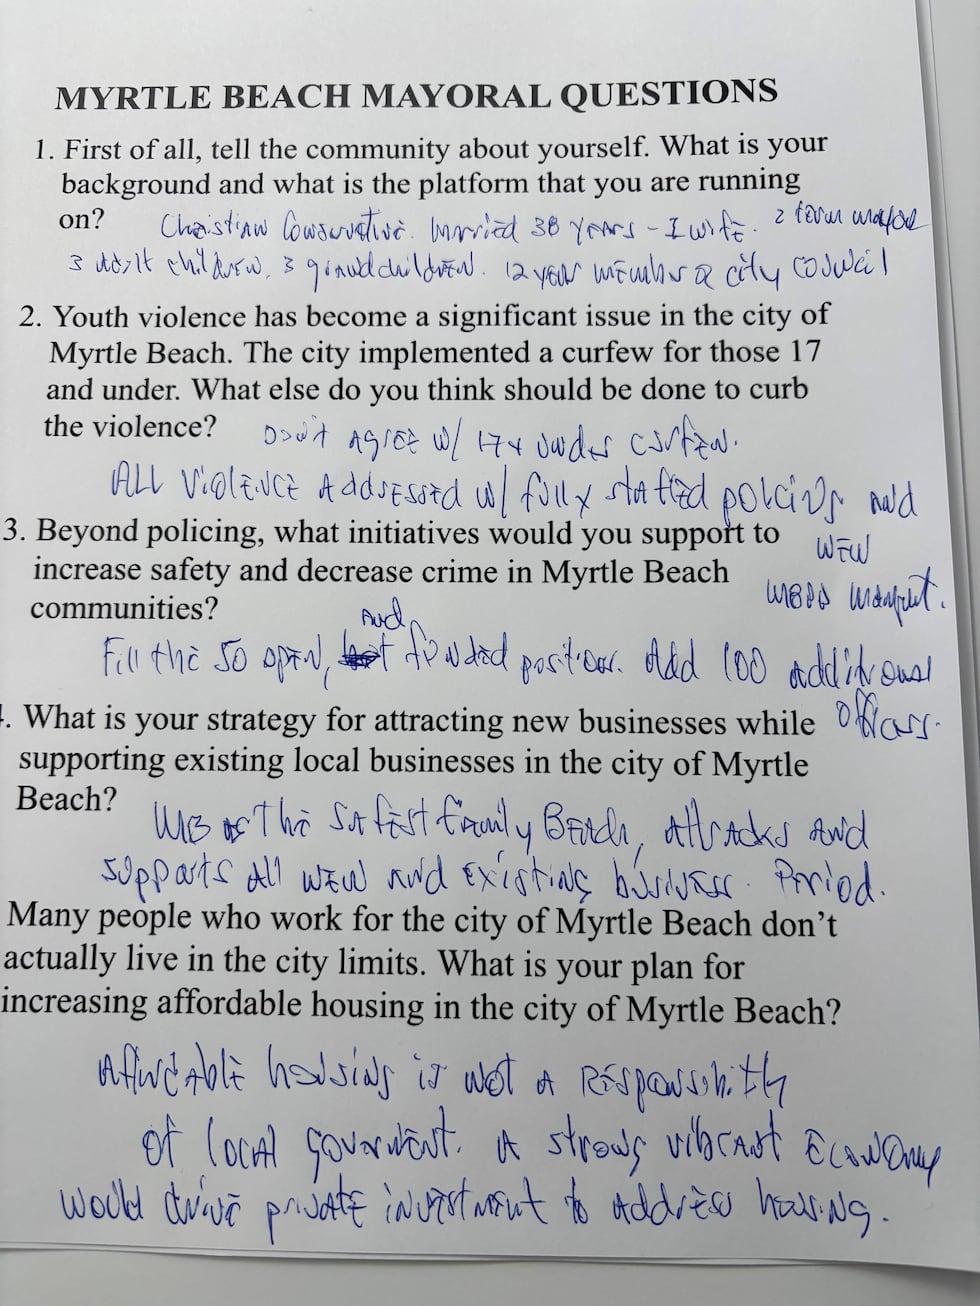 MYRTLE BEACH MAYORAL QUESTIONS
1. First of all, tell the community about yourself. What is your
background and what is the platform that you are running
on? Christian Conservative. Married 38 years - 1 wife. 2 term mayor
3 adult children, 3 grandchildren. 12 year member city council
2. Youth violence has become a significant issue in the city of
Myrtle Beach. The city implemented a curfew for those 17
and under. What else do you think should be done to curb
the violence? Don't AGREE w/ 17 & under curfew.
ALL VIOLENCE ADDRESSED w/ fully staffed policing and
3. Beyond policing, what initiatives would you support to
NEW
increase safety and decrease crime in Myrtle Beach
MBPD
communities?
And
Fill the 50 open, funded positions. Add 100 additional
. What is your strategy for attracting new businesses while officers.
supporting existing local businesses in the city of Myrtle
Beach? MB as The Safest family Beach, attracks and
supports all new and existing business. Period.
Many people who work for the city of Myrtle Beach don't
actually live in the city limits. What is your plan for
increasing affordable housing in the city of Myrtle Beach?
Affordable housing is not a Responsibility
of local government. A strong vibrant Economy
would drive private investment to address housing.